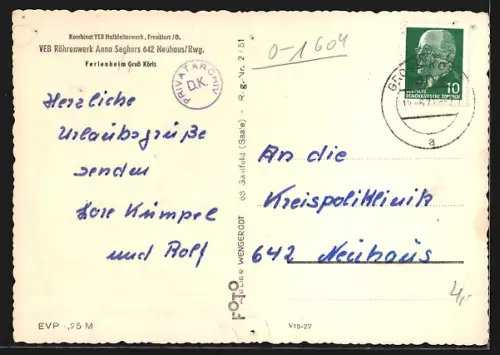 Kombinat VEB Halbleiterwerk, Frankfurt/O.
VEB Röhrenwerk Anna Seghers 642 Neuhaus/Rwg.
Ferienheim Groß Köris
PRIVATARCHIV
D.K.
Herzliche
Urlaubsgrüße
senden
Lore Kümpel
und Rolf
EVP -,25 M
FOTO
ATELIER WENGERODT 68 Saalfeld (Saale) - Rg.-Nr. 2/51
V15-27
0-1604
10
DEUTSCHE
DEMOKRATISCHE REPUBLIK
a
An die
Kreispoliklinik
642 Neuhaus
4,-